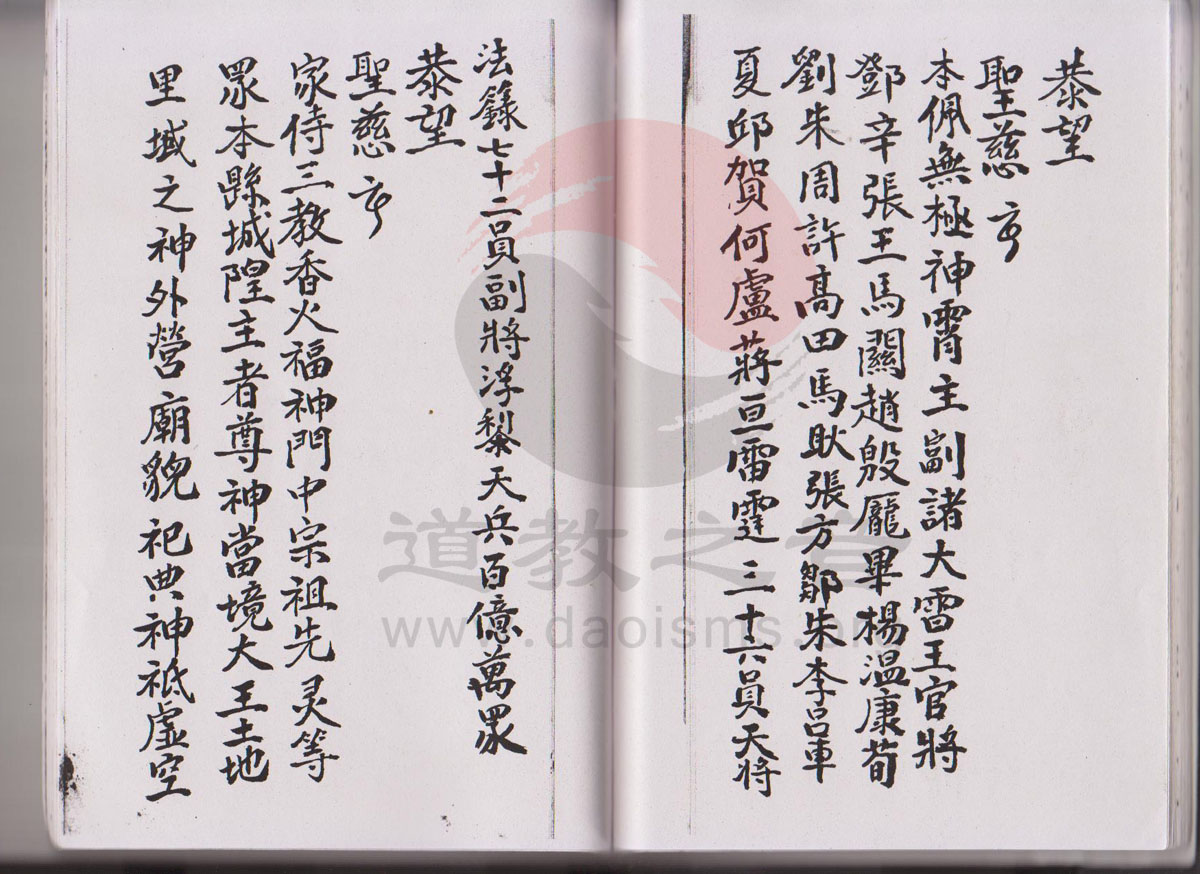 恭望
聖慈
本佩無極神霄主副諸大雷王官將
鄧辛張王馬關趙殷龐畢楊温康荀
劉朱周許高田馬耿張方鄒朱李呂車
夏邱賀何盧蔣亘雷霆三十六員天將
法籙七十二員副將浮黎天兵百億萬眾
恭望
聖慈
家侍三教香火福神門中宗祖先灵等
眾本縣城隍主者尊神當境大王土地
里域之神外營廟貌祀典神祇虛空
道教之音
www.daoisms.